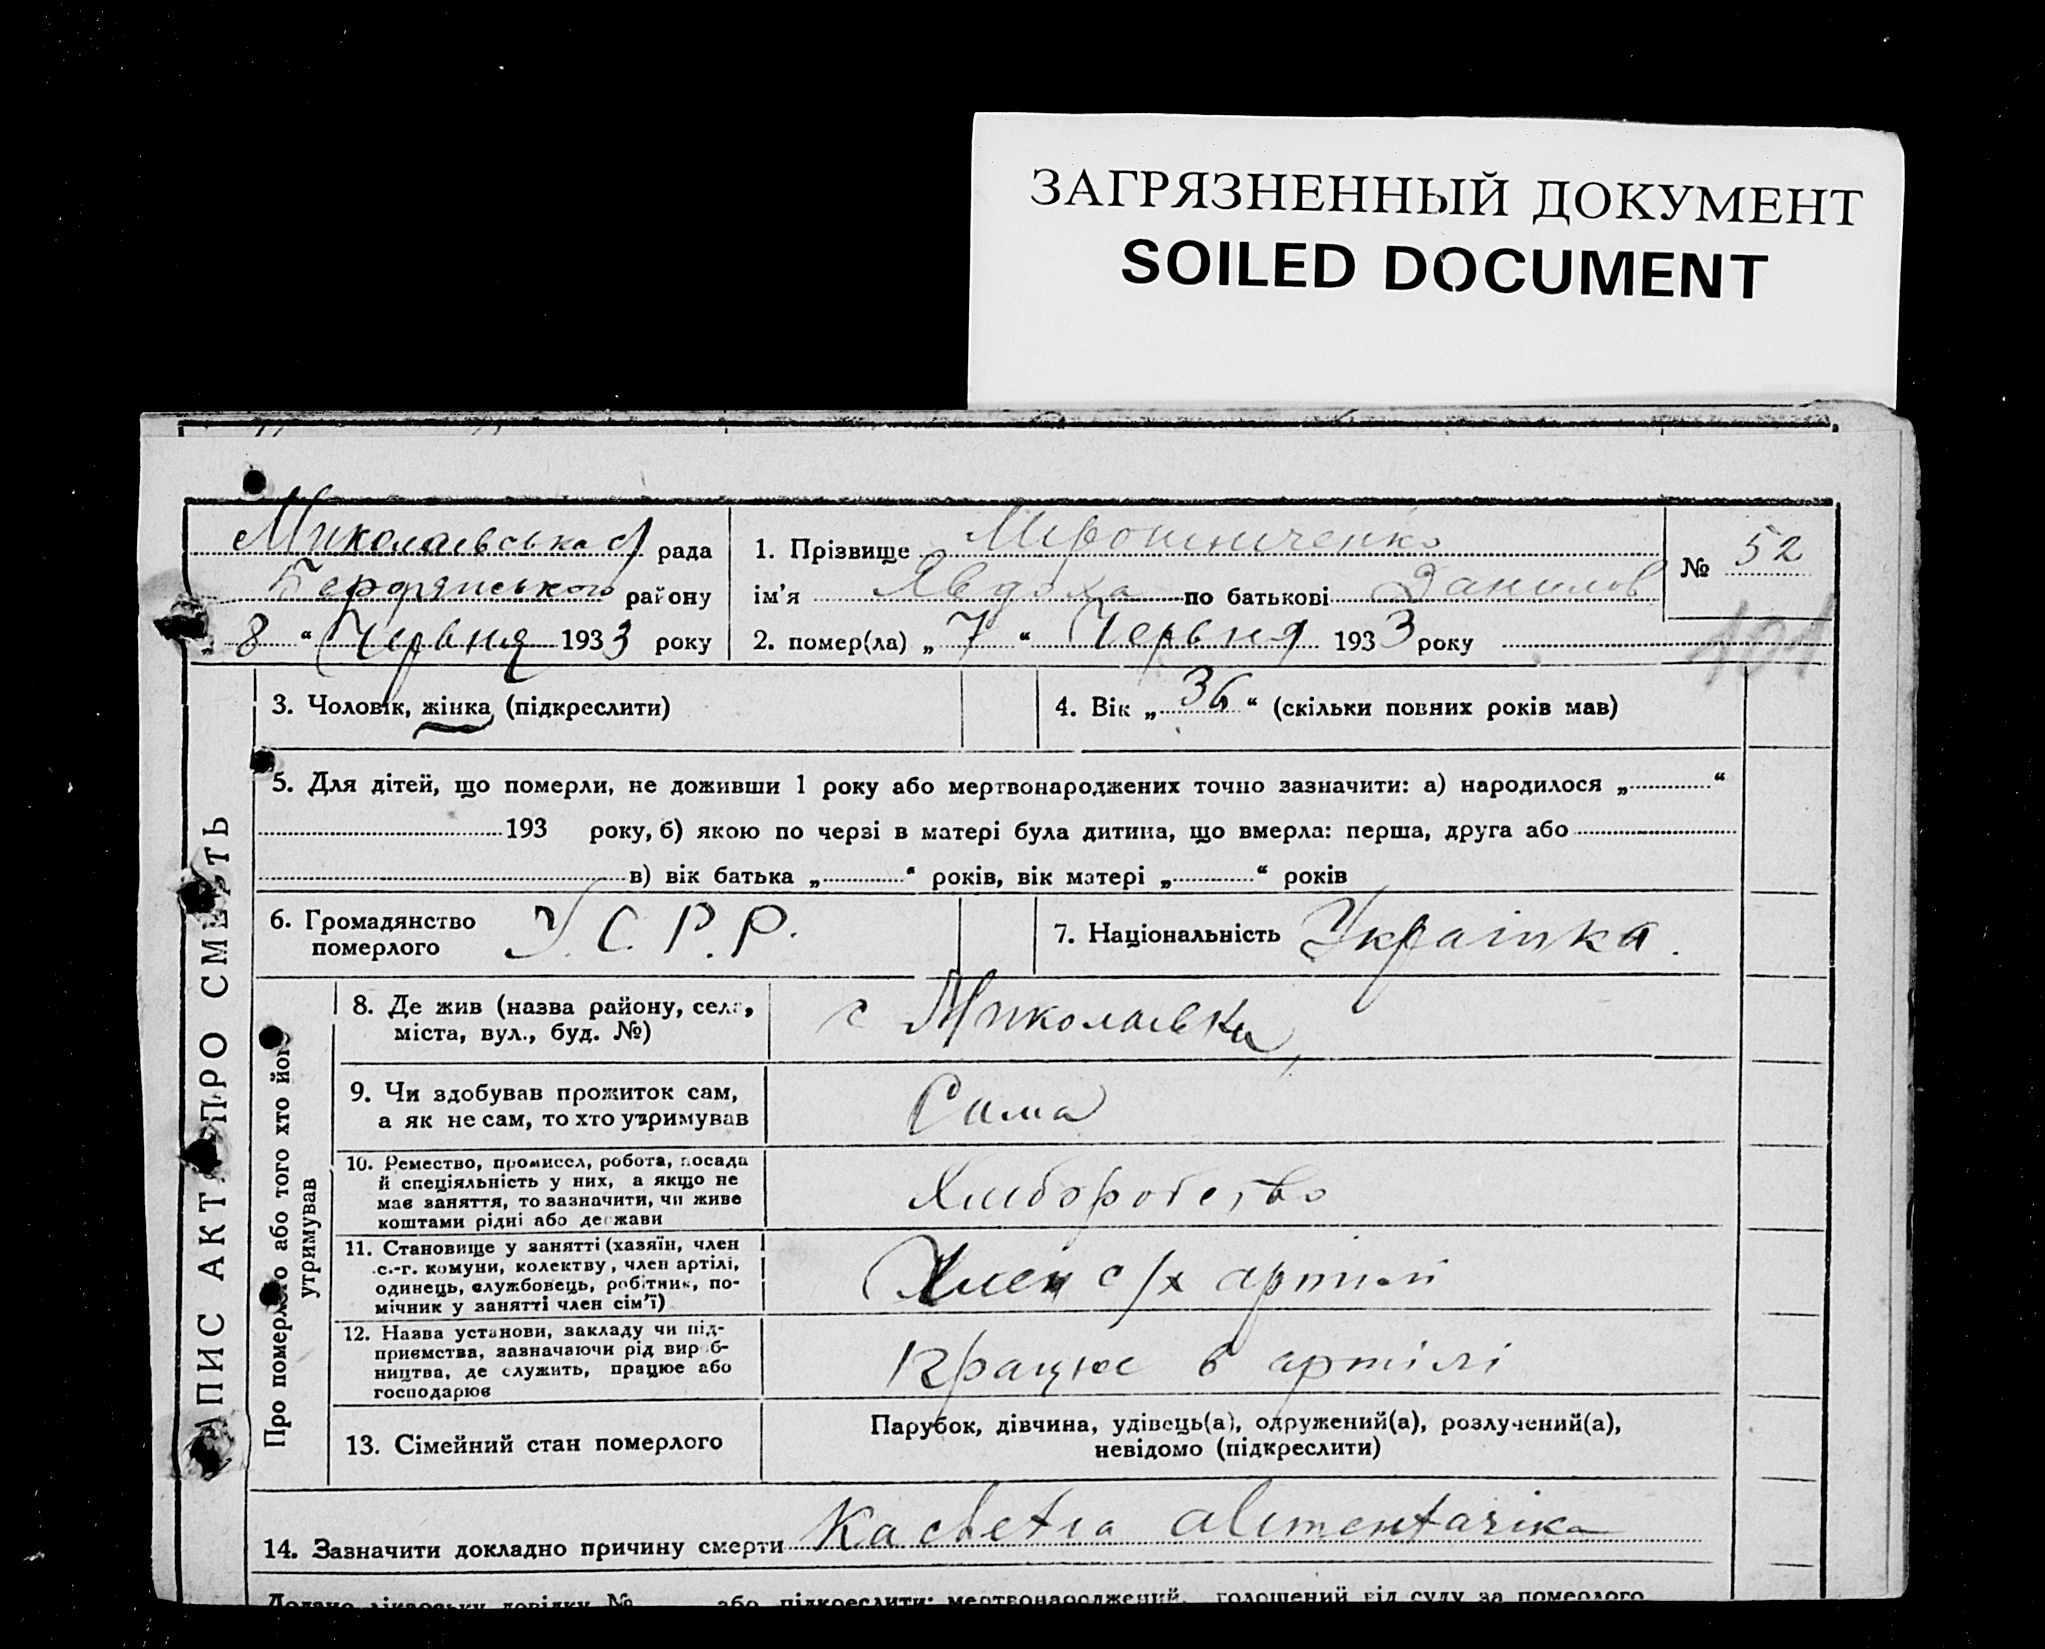 ЗАГРЯЗНЕННЫЙ ДОКУМЕНТ
SOILED DOCUMENT
Миколаївська рада
Бердянського району
„ 8 “ Червня 1933 року
1. Прізвище Мірошниченко
ім’я Явдоха по батькові Данилов
2. помер(ла) „ 7 “ Червня 1933 року
№ 52
ЗАПИС АКТ ПРО СМЕРТЬ
3. Чоловік, жінка (підкреслити)
4. Вік „ 36 “ (скільки повних років мав)
5. Для дітей, що померли, не доживши 1 року або мертвонароджених точно зазначити: а) народилося „ “
193 року, б) якою по черзі в матері була дитина, що вмерла: перша, друга або
в) вік батька „ “ років, вік матері „ “ років
6. Громадянство
померлого
У.С.Р.Р.
7. Національність Українка.
Про померлого або того хто його
утримував
8. Де жив (назва району, села,
міста, вул., буд. №)
с Миколаївка
9. Чи здобував прожиток сам,
а як не сам, то хто утримував
Сама
10. Ремество, промисел, робота, посада
й спеціяльність у них, а якщо не
має заняття, то зазначити, чи живе
коштами рідні або держави
Хліборобство
11. Становище у занятті (хазяїн, член
с.-г. комуни, колектву, член артілі,
одинець, службовець, робітник, по-
мічник у занятті член сім’ї)
Член с/х артілі
12. Назва установи, закладу чи під-
приємства, зазначаючи рід вироб-
ництва, де служить, працює або
господарює
Працює в артілі
13. Сімейний стан померлого
Парубок, дівчина, удівець(а), одружений(а), розлучений(а),
невідомо (підкреслити)
14. Зазначити докладно причину смерти Kachetia alimentarika
Додано лікарську довідку № або підкреслити: мертвонароджений, голошений від суду за померлого